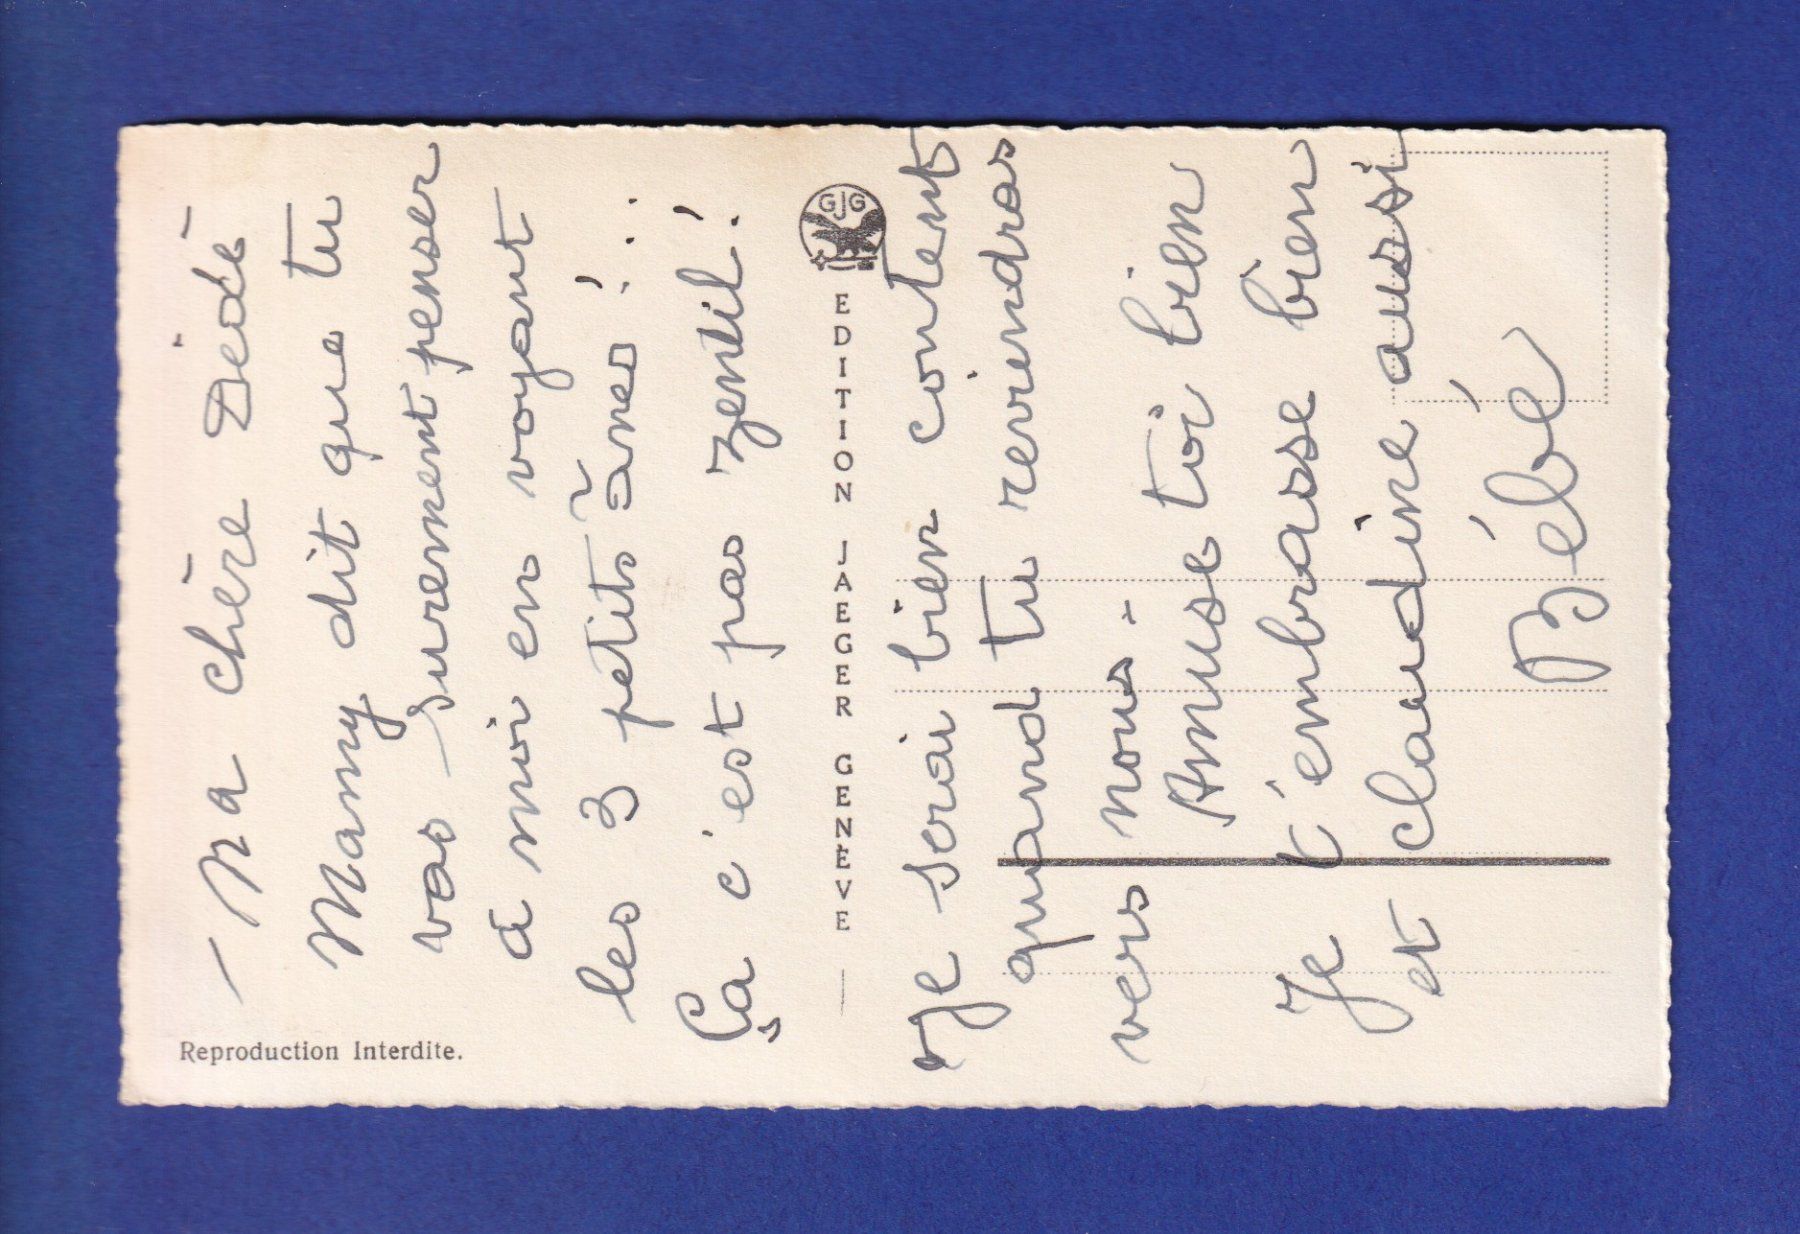 Ma chère Dédé
Mamy dit que tu
vas surement penser
à moi en voyant
les 3 petits ânes! . .
Ça c'est pas zentil!
Je serai bien contente
quand tu reviendras
vers nous -
Amuse toi bien
Je t'embrasse bien
et Claudine aussi
Bébé
Reproduction Interdite.
EDITION JAEGER GENÈVE
GJG